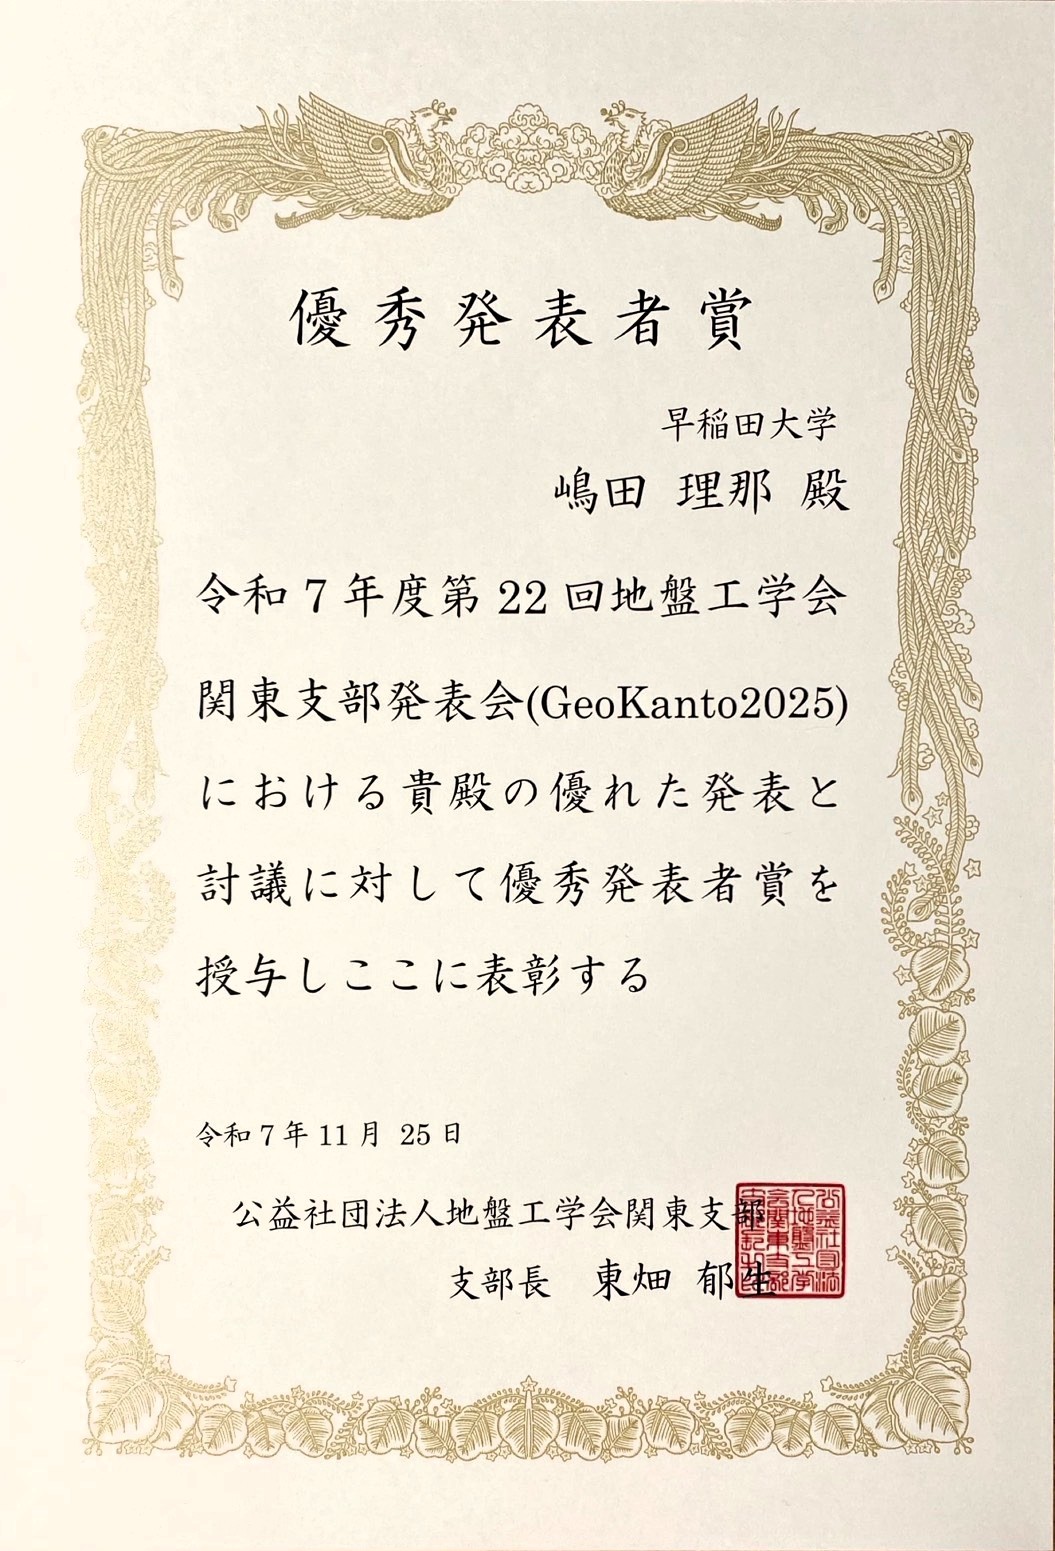 優秀発表者賞
早稲田大学
嶋田 理那 殿
令和7年度第22回地盤工学会
関東支部発表会(GeoKanto2025)
における貴殿の優れた発表と
討議に対して優秀発表者賞を
授与しここに表彰する
令和7年11月 25日
公益社団法人地盤工学会関東支部
支部長 東畑 郁生